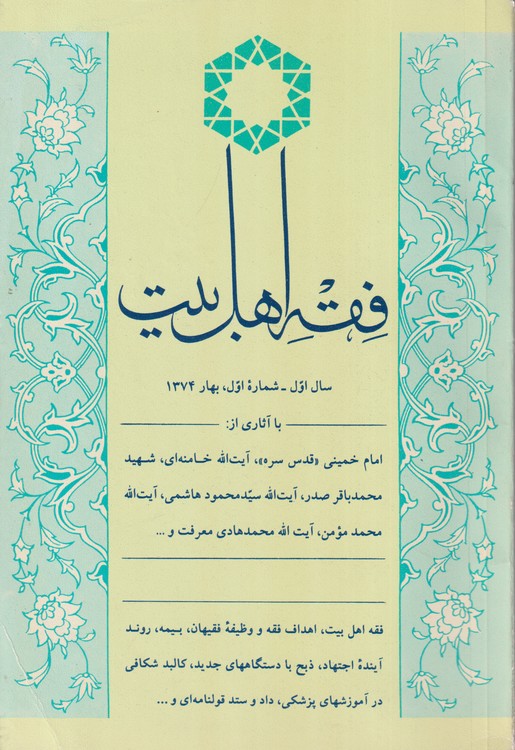 فقه اهل بیت
سال اوّل ـ شمارهٔ اوّل، بهار ۱۳۷۴
با آثاری از:
امام خمینی «قدس سره»، آیت‌الله خامنه‌ای، شهید
محمدباقر صدر، آیت‌الله سیّدمحمود هاشمی، آیت‌الله
محمد مؤمن، آیت الله محمدهادی معرفت و ...
فقه اهل بیت، اهداف فقه و وظیفهٔ فقیهان، بیمه، روند
آیندهٔ اجتهاد، ذبح با دستگاههای جدید، کالبد شکافی
در آموزشهای پزشکی، داد و ستد قولنامه‌ای و ...